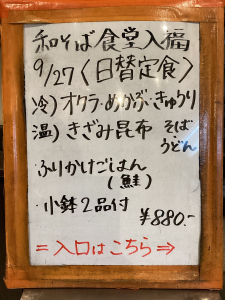 和そば食堂入福
9/27〈日替定食〉
冷)オクラ・めかぶ・きゅうり
温)きざみ昆布 そば
うどん
・ふりかけごはん
(鮭)
・小鉢2品付
¥880.-
=入口はこちら⇒